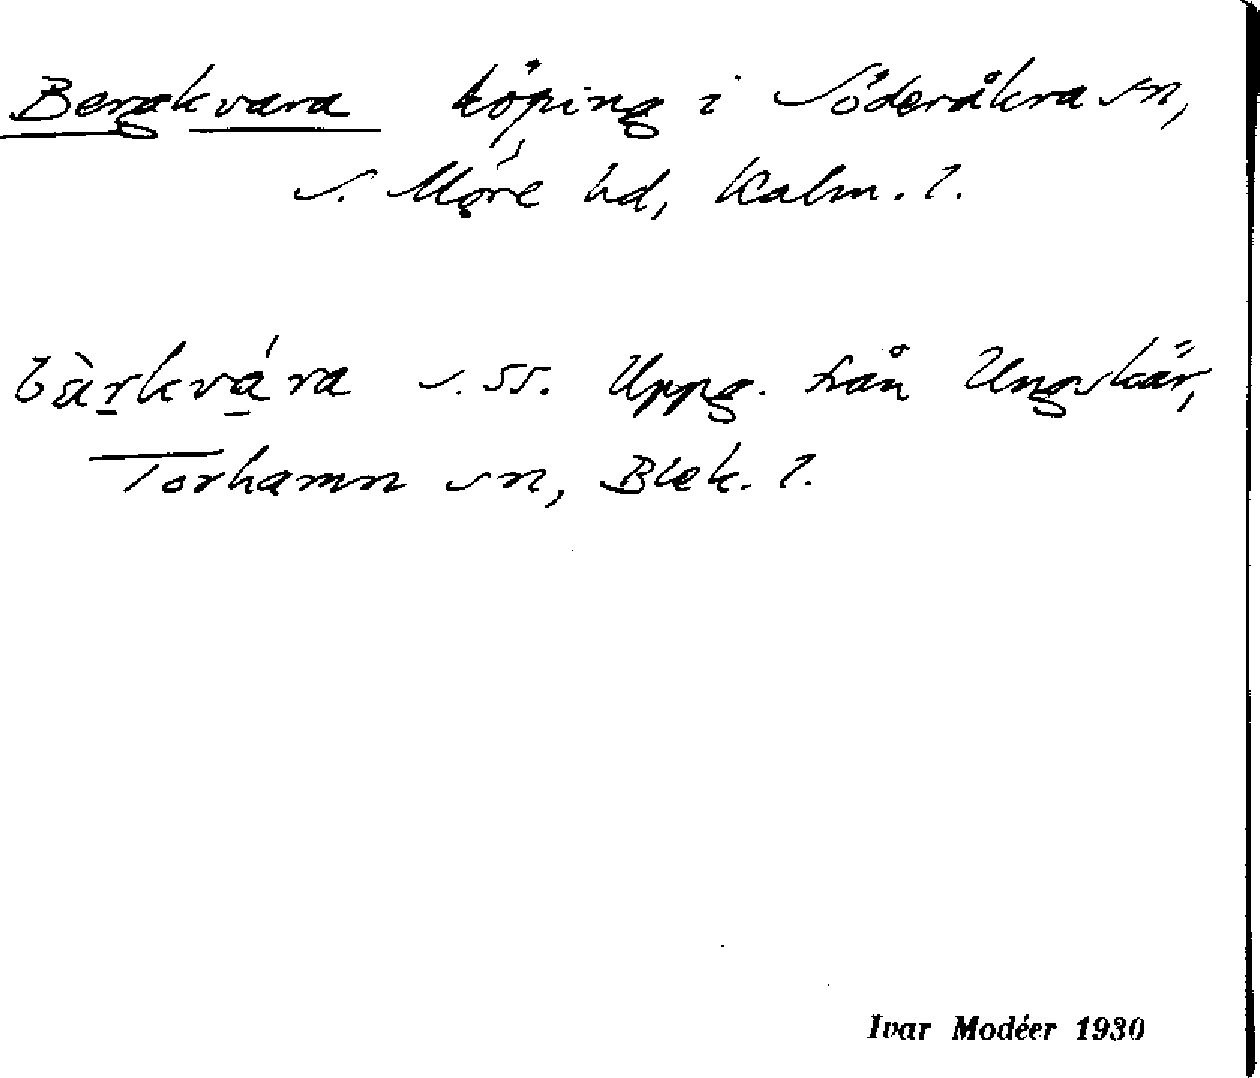 Bergkvara köping i Söderåkra sn,
S. Möre hd, Kalm. l.
bàrkvára s. ss. Uppg. från Ungskär,
Torhamn sn, Blek. l.
Ivar Modéer 1930